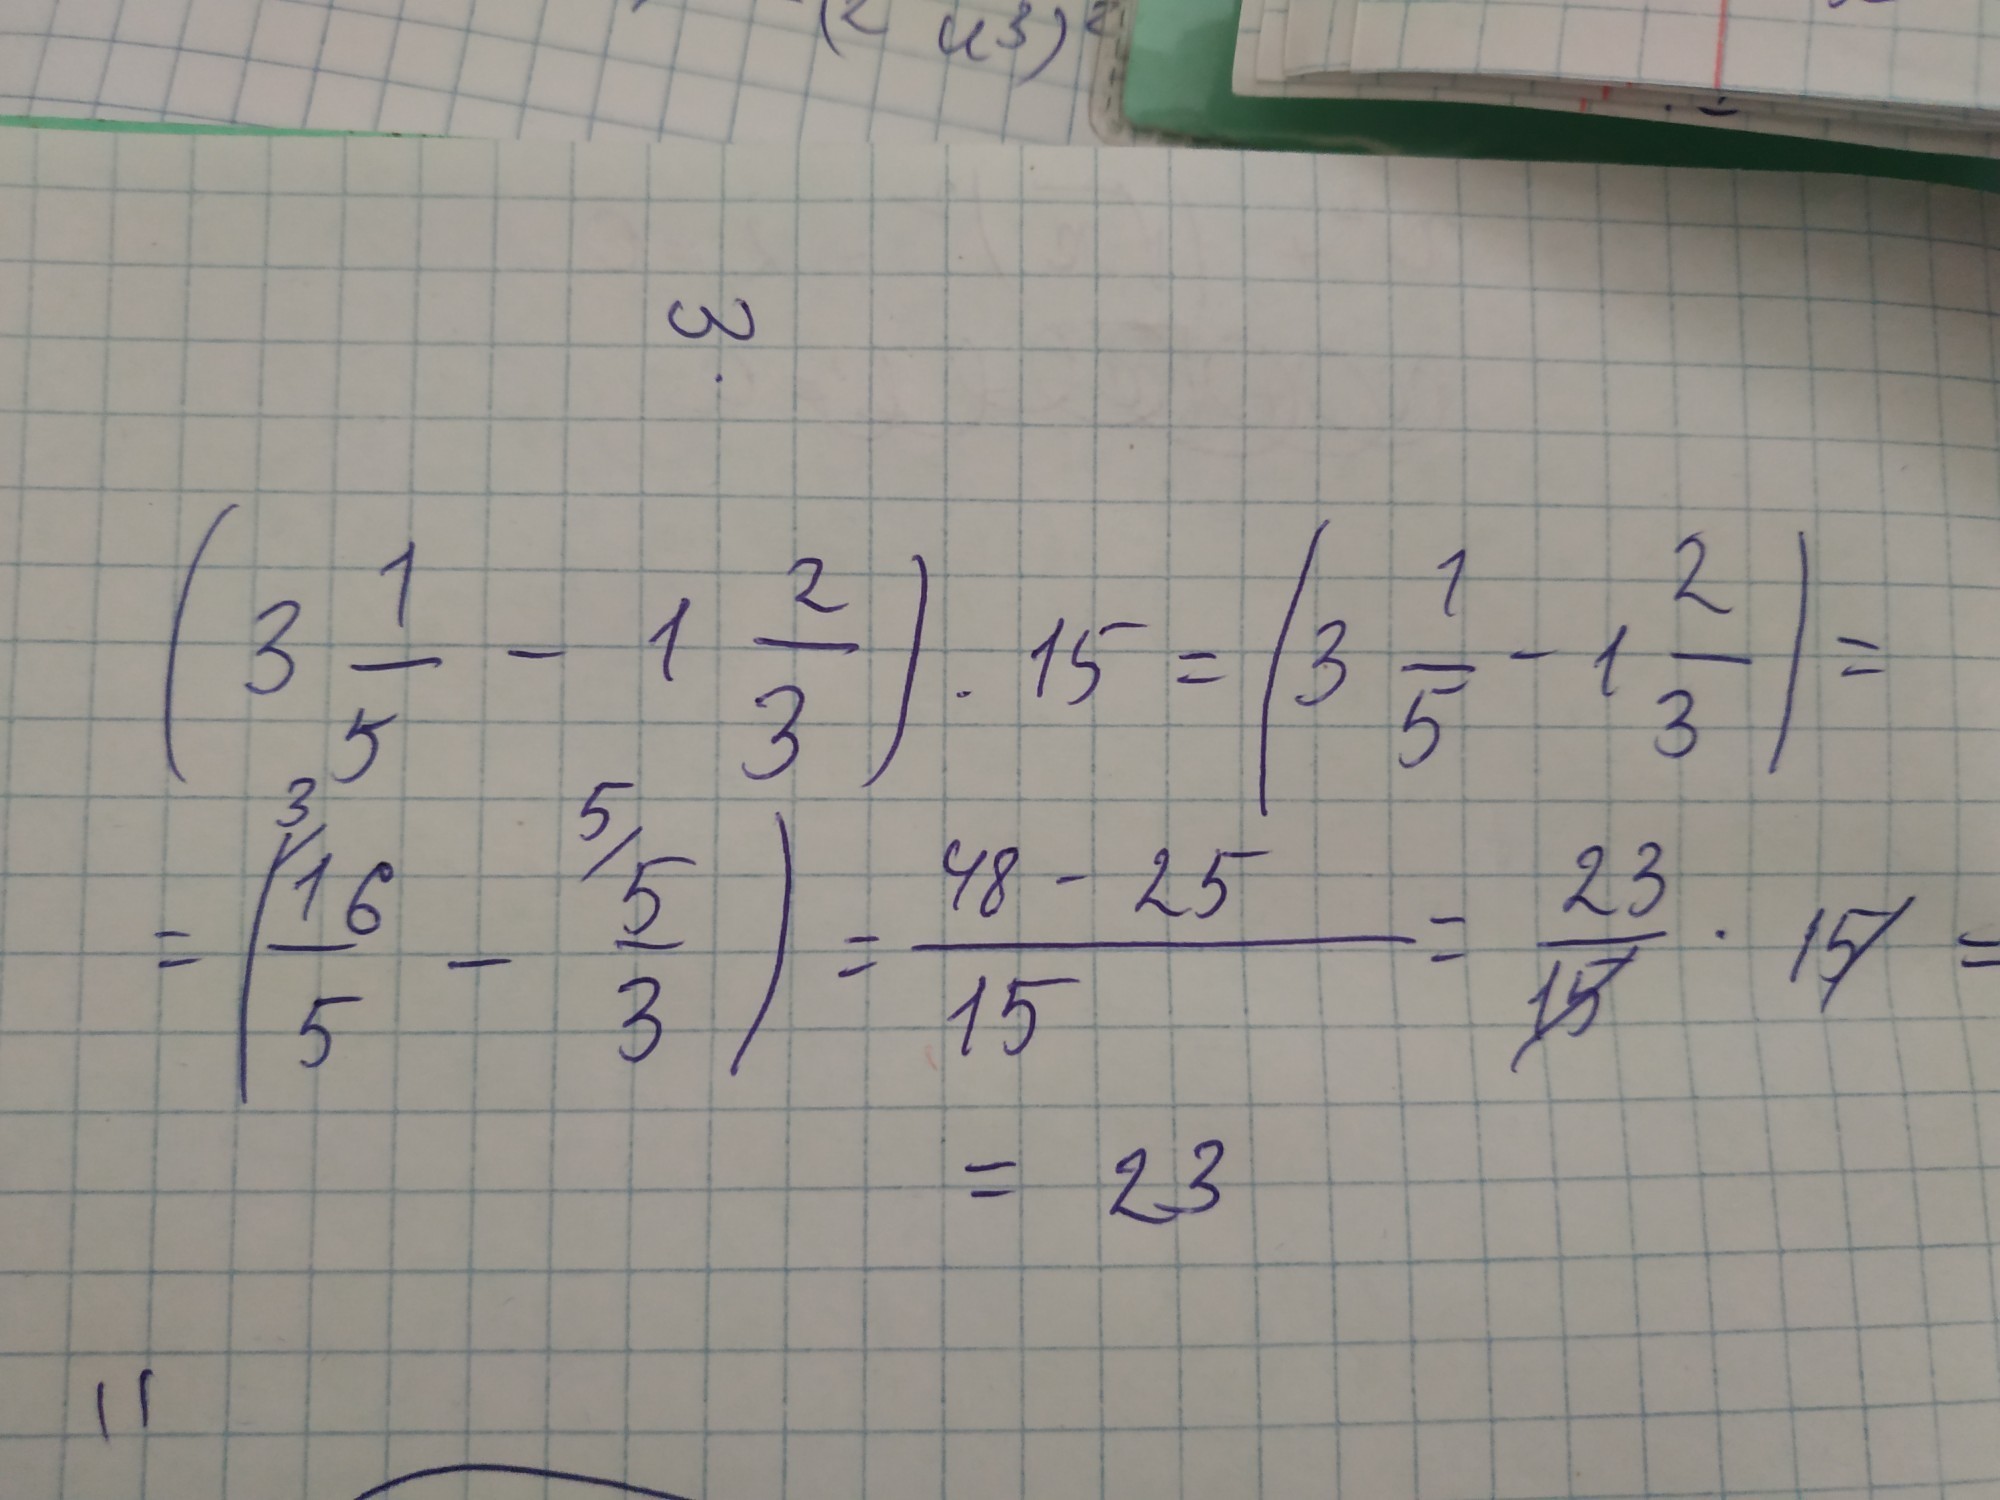 (2 u³)²
3.
(3 1/5 - 1 2/3) · 15 = (3 1/5 - 1 2/3) =
= (16/5 ³⁄ - 5/3 ⁵⁄) = 48 - 25 / 15 = 23/15 · 15 =
= 23